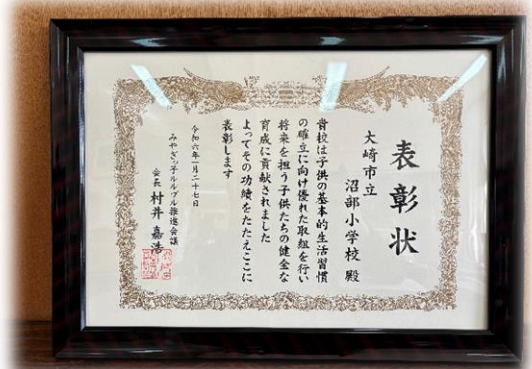 表彰状
大崎市立
沼部小学校 殿
貴校は子供の基本的生活習慣
の確立に向け優れた取組を行い
将来を担う子供たちの健全な
育成に貢献されました
よってその功績をたたえここに
表彰します
令和六年一月二十七日
みやぎっ子ルルブル推進会議
会長 村井 嘉浩